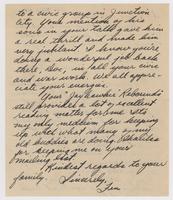 to a civic group in Junction
City. Your mention of his
song in your talk gave him
a real thrill and made him
very jubilant. I know you're
doing a wonderful job back
there, too, in both your civic
and war work. We all appre-
ciate your energies.
Your "Jayhawker Roboundo"
still provides a lot of excellent
reading matter for me. It's
my only medium for keeping
up with what many of my
old buddies are doing. Thanks
for keeping me on your
mailing list.
Kindest regards to your
family. Sincerely,